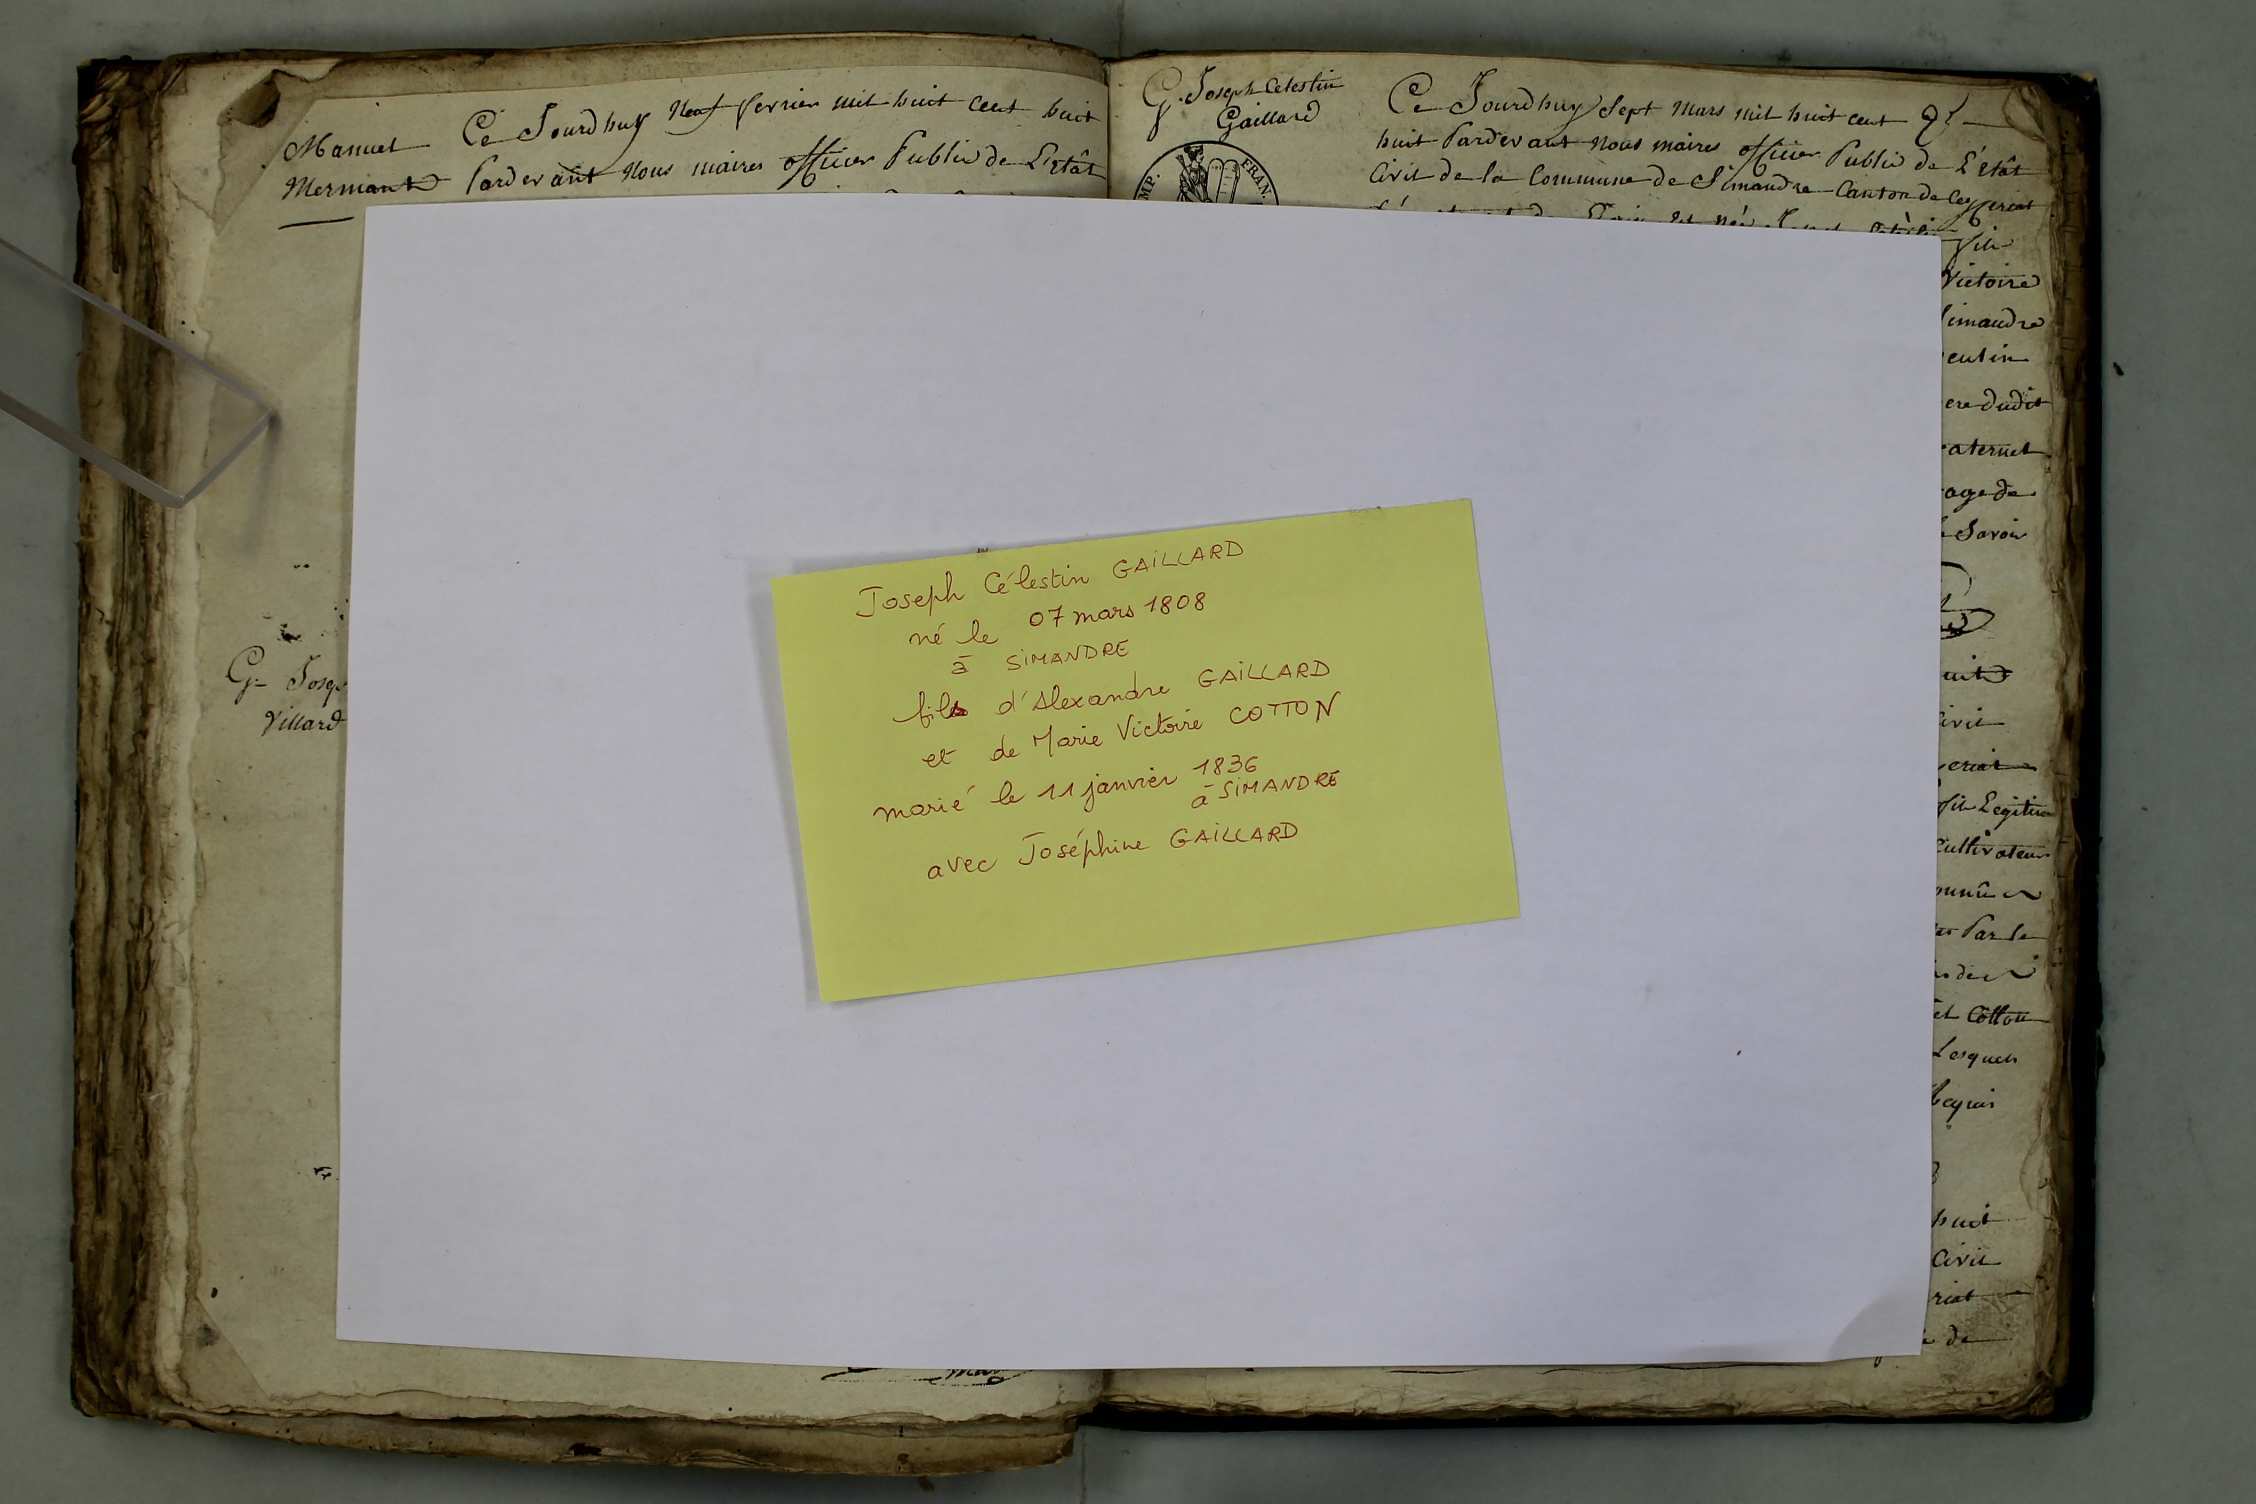 Manuel
Mermant
Ce Jourdhuy Neuf fevrier mil huit cent huit
Pardevant Nous maires officier Public de L'Etât
G. Josep
Villard
G. Joseph Celestin
Gaillard
MP. FRAN.
Ce Jourdhuy Sept mars mil huit cent
huit Pardevant Nous maires officier Public de L'Etât
Civil de la Commune de Simandre Canton de Ceyzeriat
fils
Victoire
Simandre
entin
ere dudit
aternel
age de
Savoir
uit
ivil
eriat
fils Legitim
Cultivateur
mune
Par le
de
et Cotton
Lesquels
huit
Civil
riat
de
Joseph Célestin GAILLARD
né le 07 mars 1808
à SIMANDRE
fils d'Alexandre GAILLARD
et de Marie Victoire COTTON
marié le 11 janvier 1836
à SIMANDRE
avec Joséphine GAILLARD